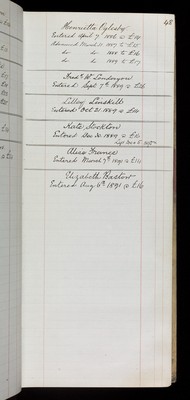 48
Henrietta Oglesby
Entered April 7th 1886 @ £14
Advanced March 31 1887 to £15
do do 1888 to £16
do do 1889 to £17
Fredk W. Londoryon
Entered Sept 7th 1889 @ £26
Lilley Linskell
Entered Oct 21 1889 @ £14
Kate Stockton
Entered Dec 30 1889 @ £16
Left
Alice France
Entered March 7th 1891 @ £14
Elizabeth Bastow
Entered Aug 6th 1891 @ £16